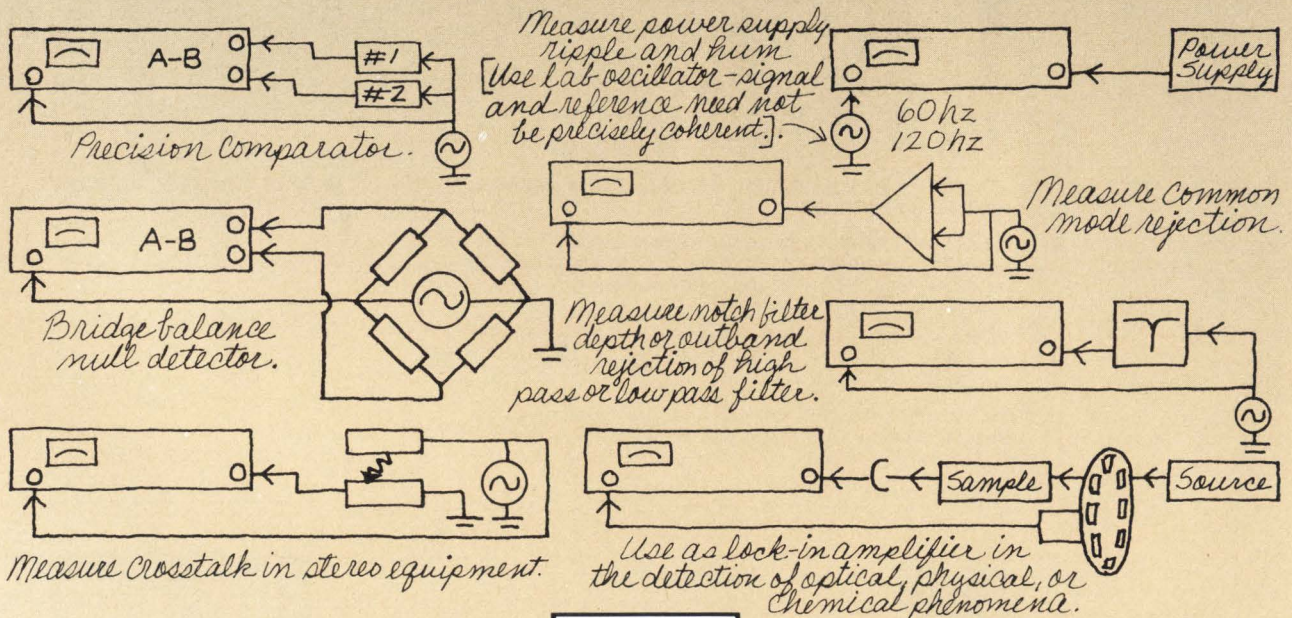 A-B
#1
#2
Precision Comparator.
Measure power supply
ripple and hum
[Use lab oscillator-signal
and reference need not
be precisely coherent.].
60hz
120hz
Power
Supply
A-B
Bridge balance
null detector.
Measure Common
mode rejection.
Measure notch filter
depth or outband
rejection of high
pass or low pass filter.
Measure Crosstalk in stereo equipment.
Sample
Source
Use as lock-in amplifier in
the detection of optical, physical, or
Chemical phenomena.